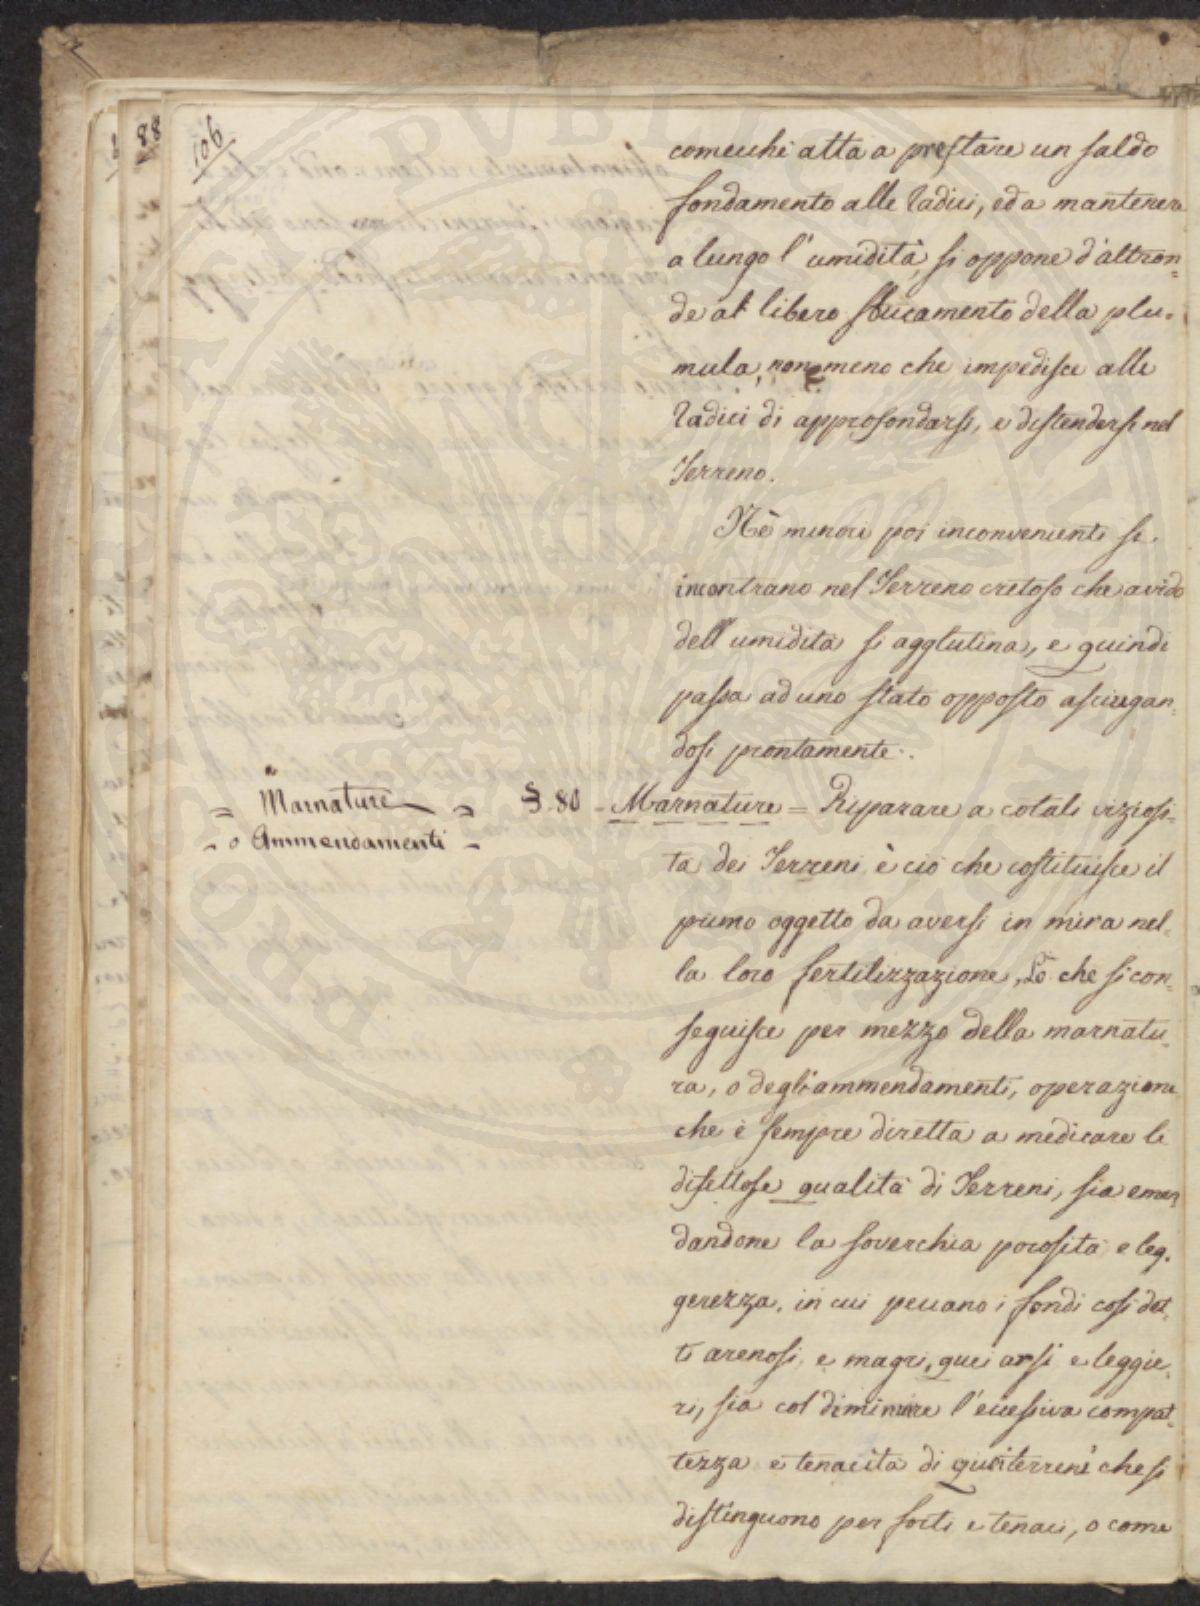 106
88
comecchè atta a prestare un saldo
fondamento alle radici, ed a mantenere
a lungo l'umidità, si oppone d'altron-
de al libero sbucamento della plu-
mula, non meno che impedisce alle
radici di approfondarsi, e distendersi nel
Terreno.
Nè minori poi inconvenienti se
incontrano nel Terreno cretoso che avido
dell umidità si agglutina, e quindi
passa ad uno stato opposto asciugan-
dosi prontamente.
= Marnature =
- o Ammendamenti -
§. 80 - Marnature = Riparare a cotali viziosi-
tà dei Terreni è ciò che costituisce il
primo oggetto da aversi in mira nel-
la loro fertilizzazione, Lo che si con-
seguisce per mezzo della marnatu-
ra, o degli ammendamenti, operazione
che è sempre diretta a medicare le
difettose qualità di Terreni, sia emen-
dandone la soverchia porosità e leg-
gerezza, in cui peccano i fondi così det-
ti arenosi, e magri, quei arsi e leggie-
ri, sia col diminuire l'eccessiva compat-
tezza e tenacità di quei terreni che si
distinguono per forti e tenaci, o come